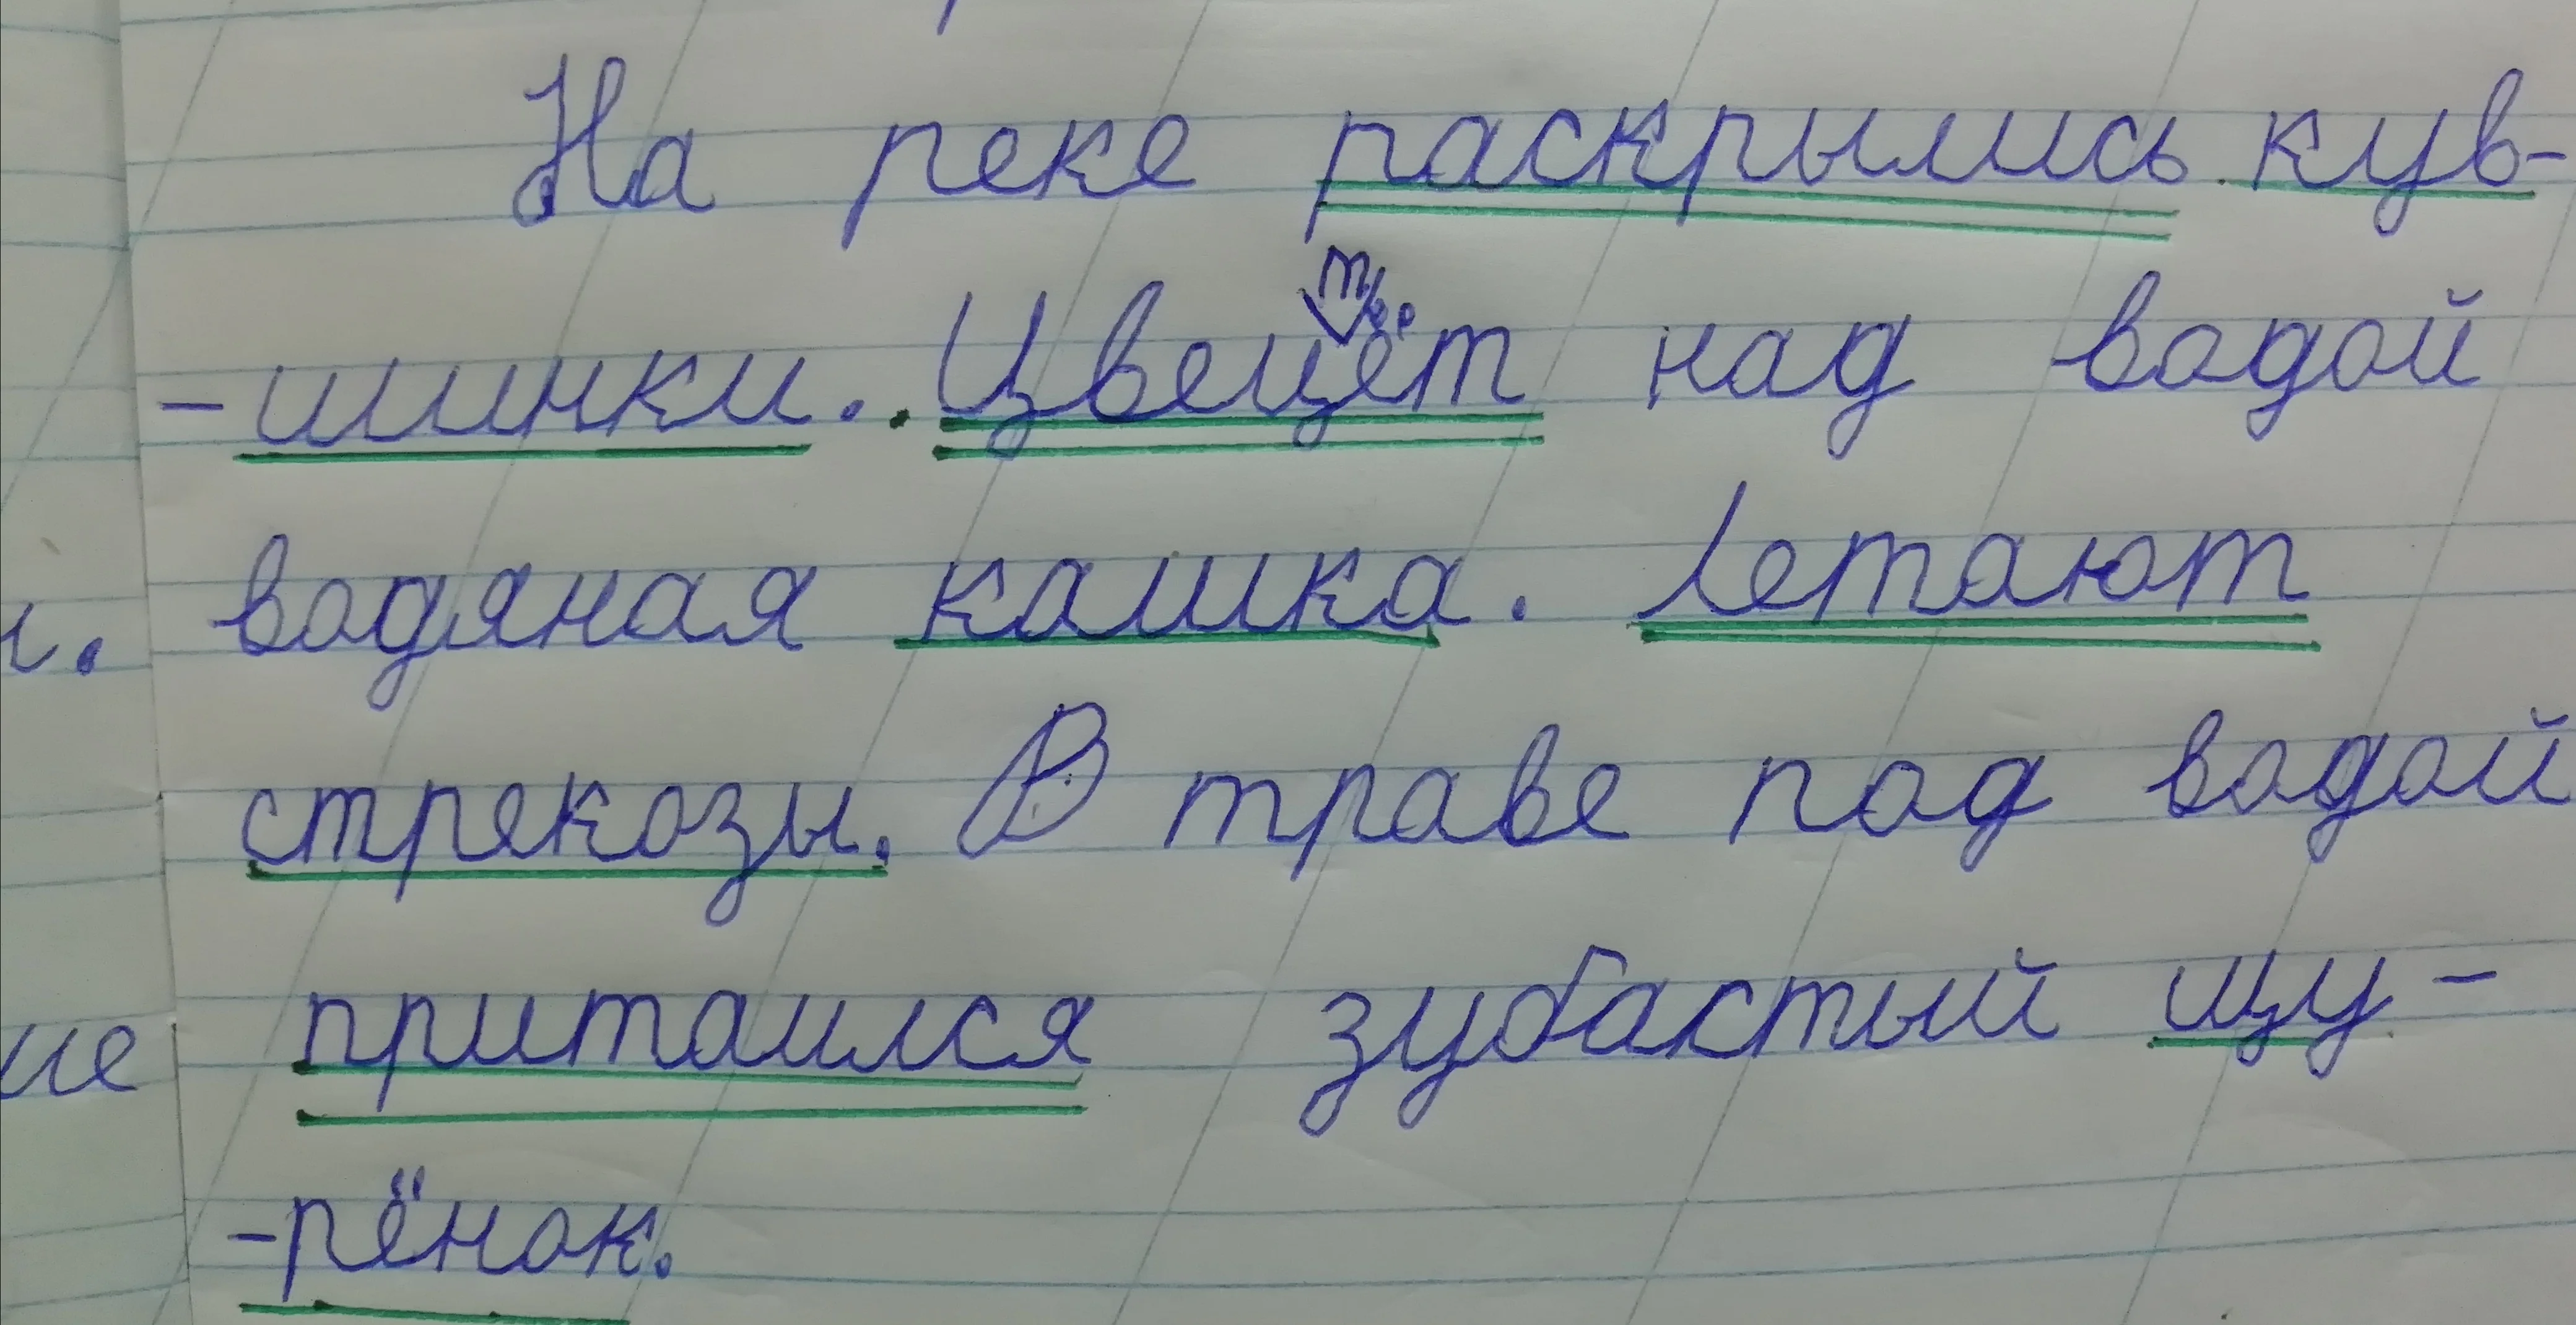 На реке раскрылись кув-
-шинки. Цветёт над водой
водяная кашка. Летают
стрекозы. В траве под водой
притаился зубастый щу-
-рёнок.